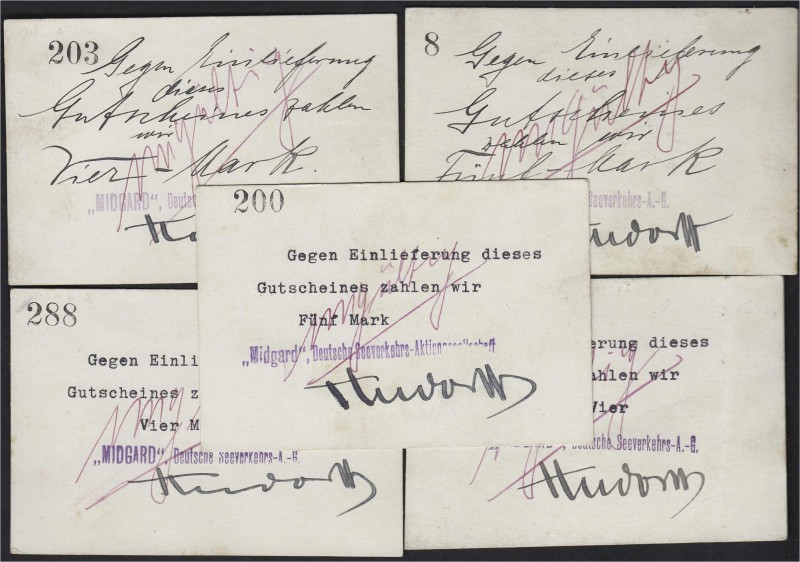 203
Gegen Einlieferung
dieses
Gutscheines zahlen
wir
Vier - Mark.
ungültig
„MIDGARD", Deutsche
8
Gegen Einlieferung
dieses
Gutscheines
zahlen wir
Fünf - Mark
ungültig
Seeverkehrs-A.-G.
200
Gegen Einlieferung dieses
Gutscheines zahlen wir
Fünf Mark
ungültig
„Midgard", Deutsche Seeverkehrs-Aktiengesellschaft
288
Gegen Einli
Gutscheines z
Vier M
„MIDGARD", Deutsche Seeverkehrs-A.-G.
erung dieses
ahlen wir
Vier
Deutsche Seeverkehrs-A.-G.